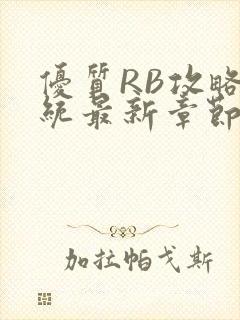 優質RB攻略
統最新章節
加拉帕戈斯